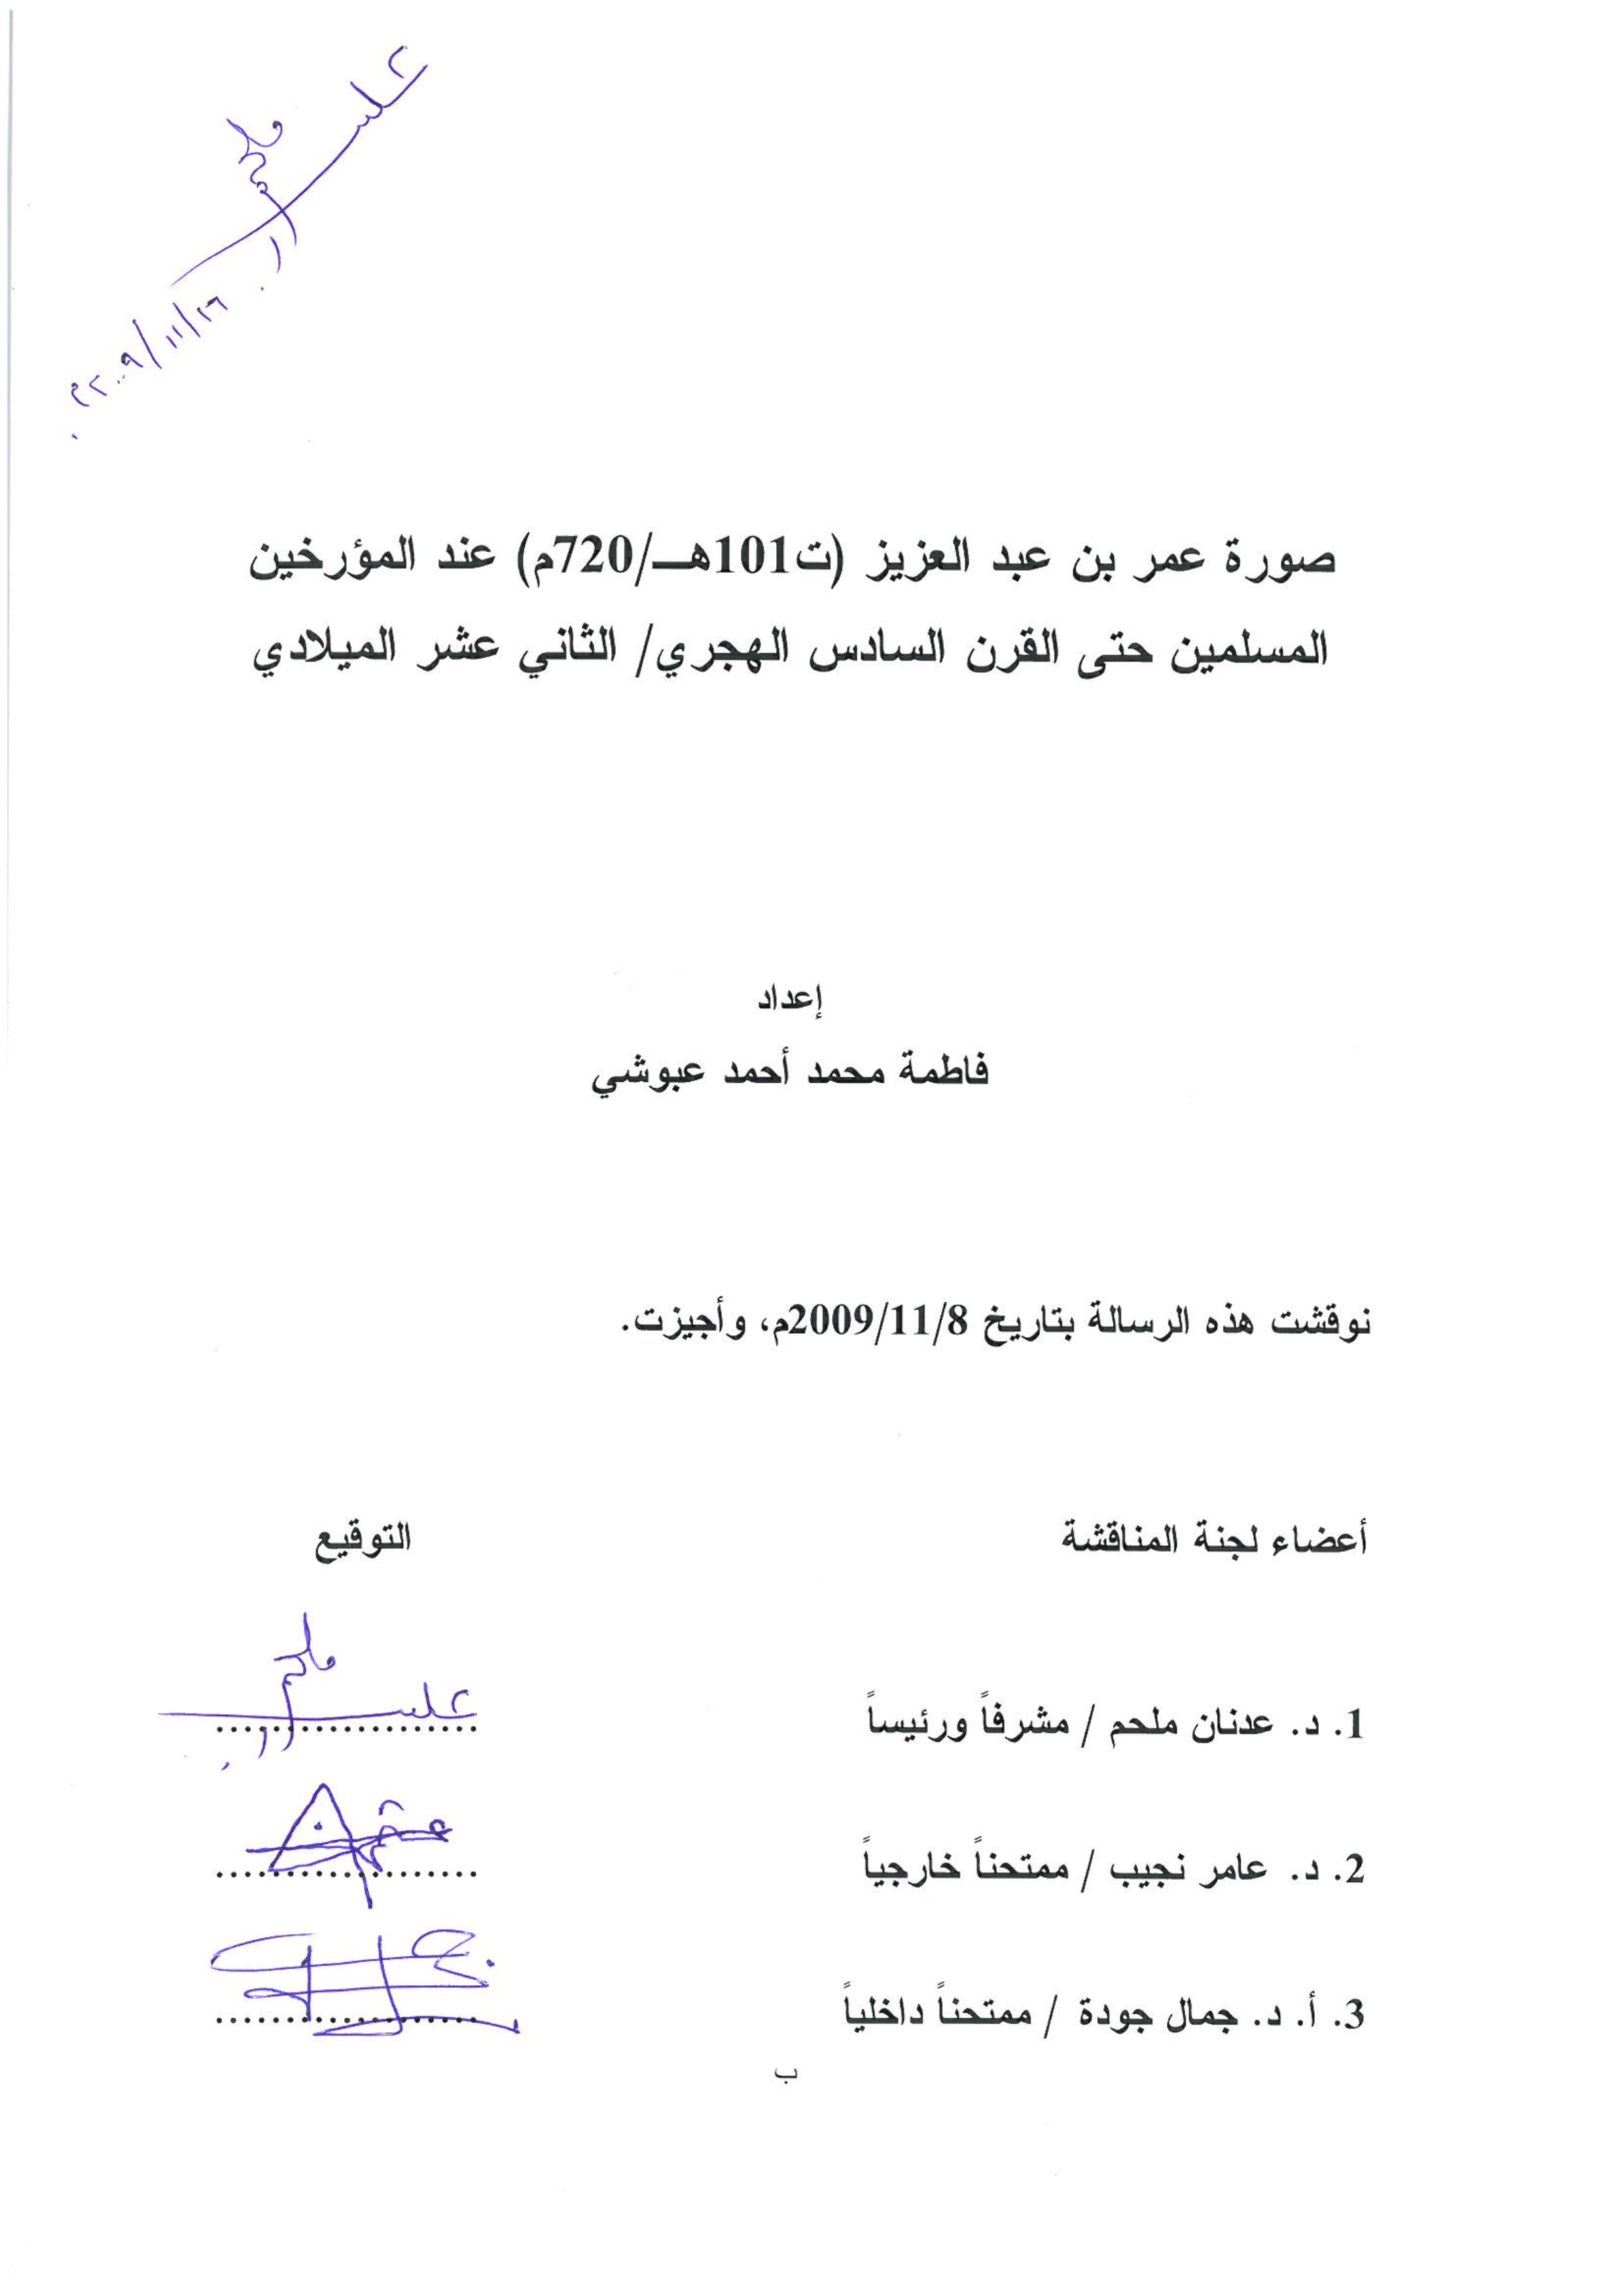 ٢٠٠٩/١١/٢٦م
صورة عمر بن عبد العزيز (ت101هـ/720م) عند المؤرخين
المسلمين حتى القرن السادس الهجري/ الثاني عشر الميلادي
إعداد
فاطمة محمد أحمد عبوشي
نوقشت هذه الرسالة بتاريخ 2009/11/8م، وأجيزت.
أعضاء لجنة المناقشة التوقيع
1. د. عدنان ملحم / مشرفاً ورئيساً ..................
2. د. عامر نجيب / ممتحناً خارجياً ..................
3. أ. د. جمال جودة / ممتحناً داخلياً ..................
ب